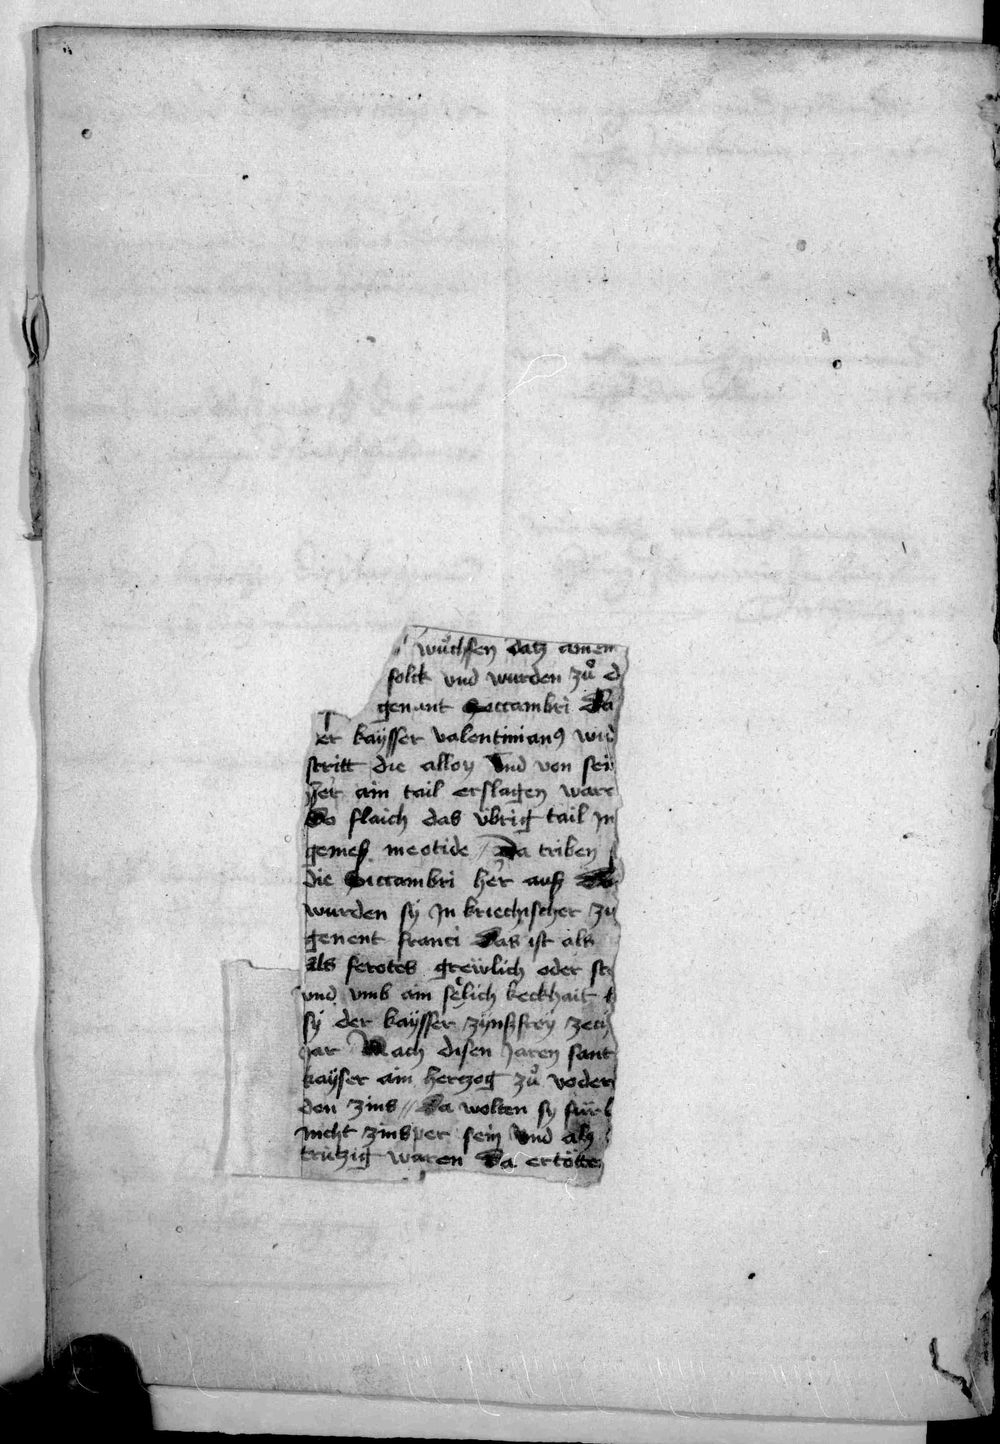 wůchsen datz ainem
folck vnd wurden zů d
genant Siccambri Da
er kaÿsser valentinian9 wid
stritt die allon Vnd von sei
her ain tail erslagen ware
So flaich das vbrig tail In
gemeß meotide / Da triben
die Siccambri her auß Do
wurden sÿ In kriechischer zu
genent franci Das ist als
als ferotes grewlich oder st
vnd vmb ain sölich keckhait
sÿ der kaÿsser zÿnßfreÿ zech
Jar Nach disen Jaren sant
kaÿser ain hertzog zů voder
den zins // Da wolten sy für
nicht zinsper sein Vnd als
trützig waren Da ertötten